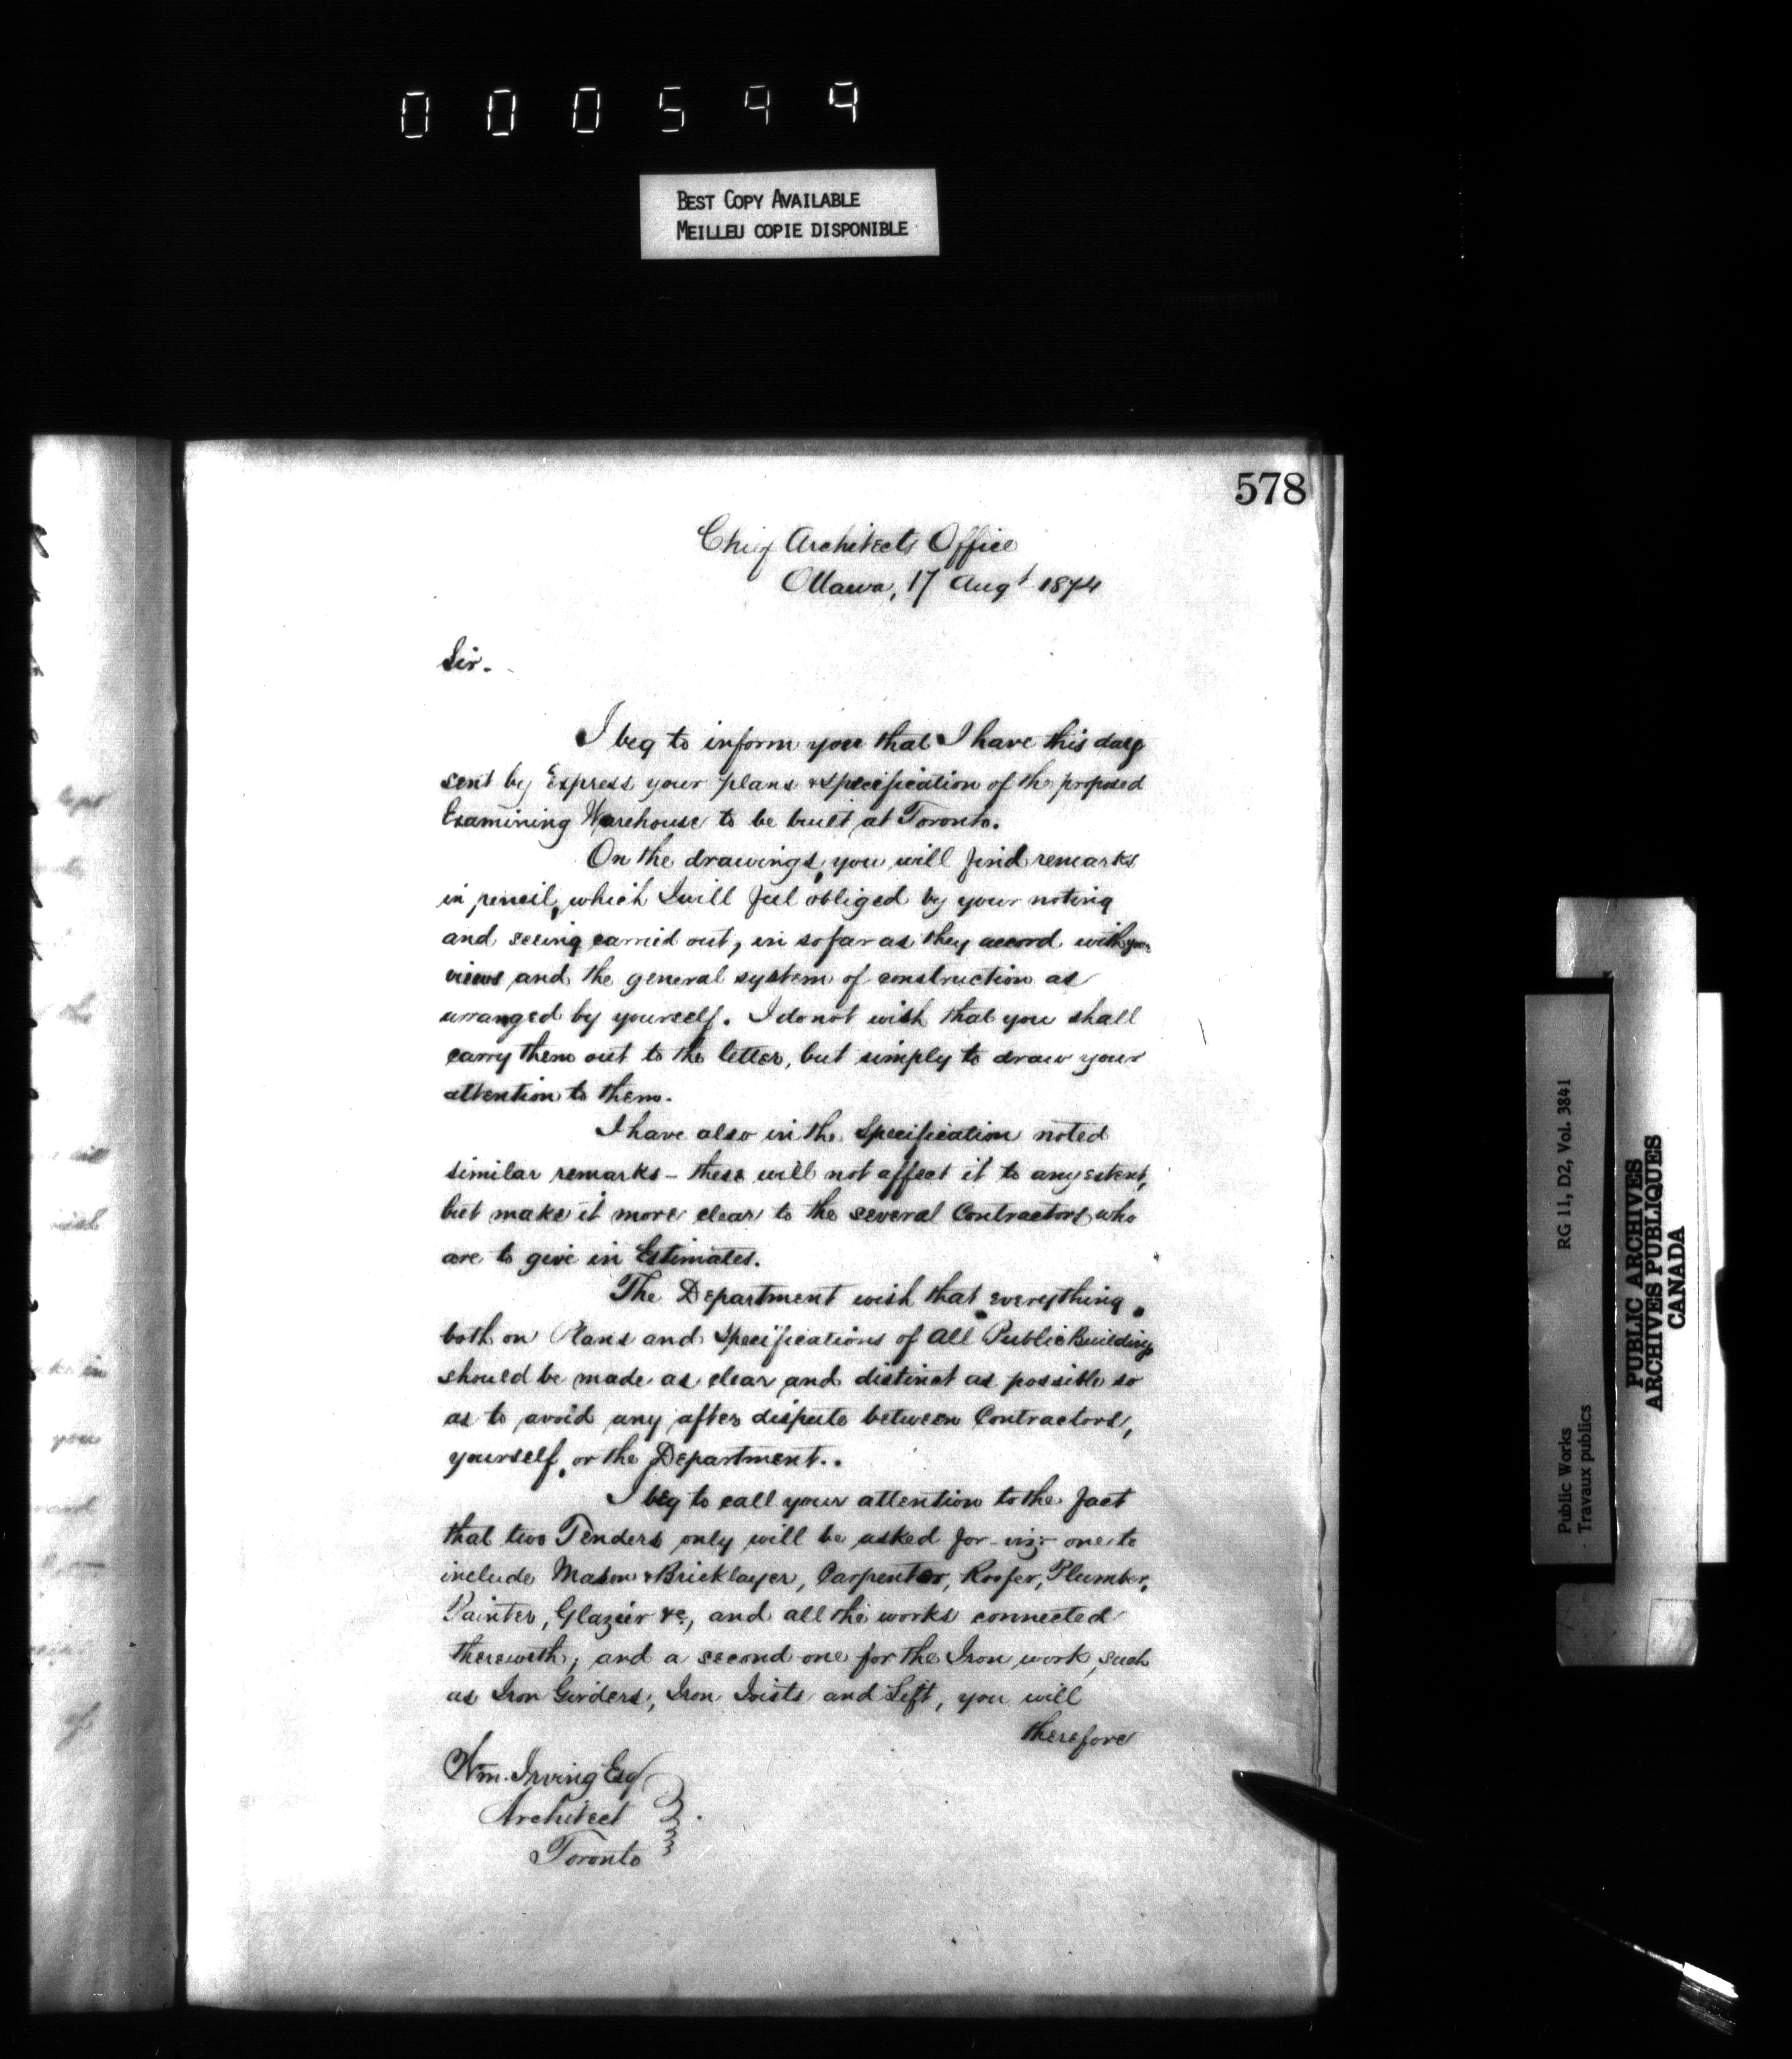 000599
BEST COPY AVAILABLE
MEILLEU COPIE DISPONIBLE
578
Chief Architects Office
Ottawa, 17 Augt 1874
Sir.
I beg to inform you that I have this day
sent by Express your plans & specification of the proposed
Examining Warehouse to be built at Toronto.
On the drawings, you will find remarks
in pencil, which I will feel obliged by your noting
and seeing carried out, in so far as they accord with your
views and the general system of construction as
arranged by yourself. I do not wish that you shall
carry them out to the letter, but simply to draw your
attention to them.
I have also in the Specification noted
similar remarks – these will not affect it to any extent,
but make it more clear to the several Contractors who
are to give in Estimates.
The Department wish that everything,
both on Plans and Specifications of all Public Buildings
should be made as clear and distinct as possible so
as to avoid any after dispute between Contractors,
yourself, or the Department.
I beg to call your attention to the fact
that two Tenders only will be asked for – viz:– one to
include Mason & Bricklayer, Carpenter, Roofer, Plumber,
Painter, Glazier &c, and all the works connected
therewith; and a second one for the Iron work, such
as Iron Girders, Iron Joists and Lift, you will
therefore
Wm. Irving Esq
Architect
Toronto
Public Works
Travaux publics
RG 11, D2, Vol. 3841
PUBLIC ARCHIVES
ARCHIVES PUBLIQUES
CANADA